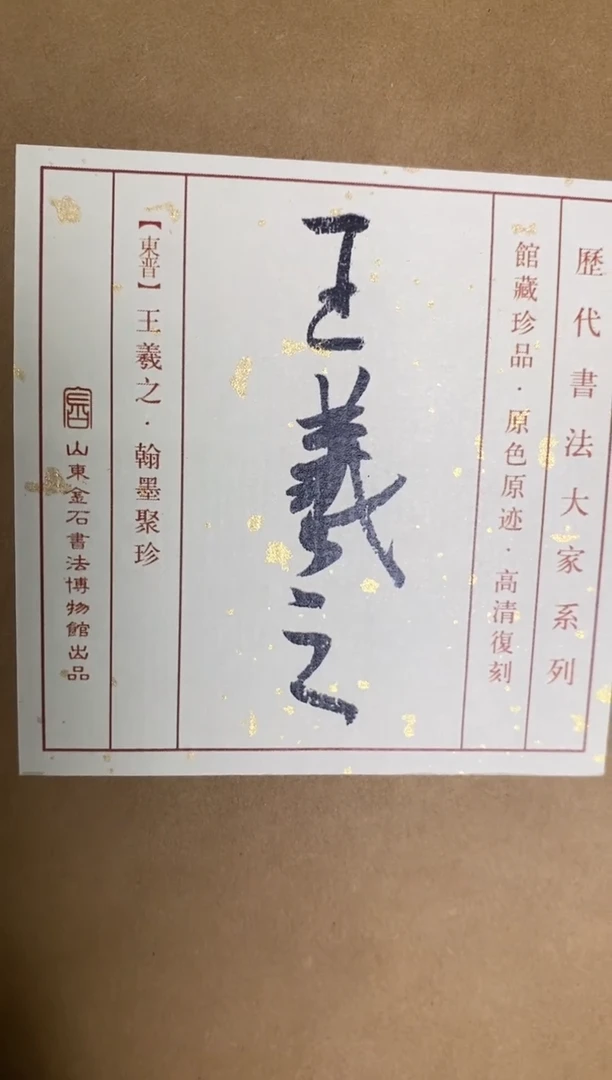 歷代書法大家系列
館藏珍品·原色原迹·高清復刻
王羲之
【東晋】王羲之·翰墨聚珍
山東金石書法博物館出品